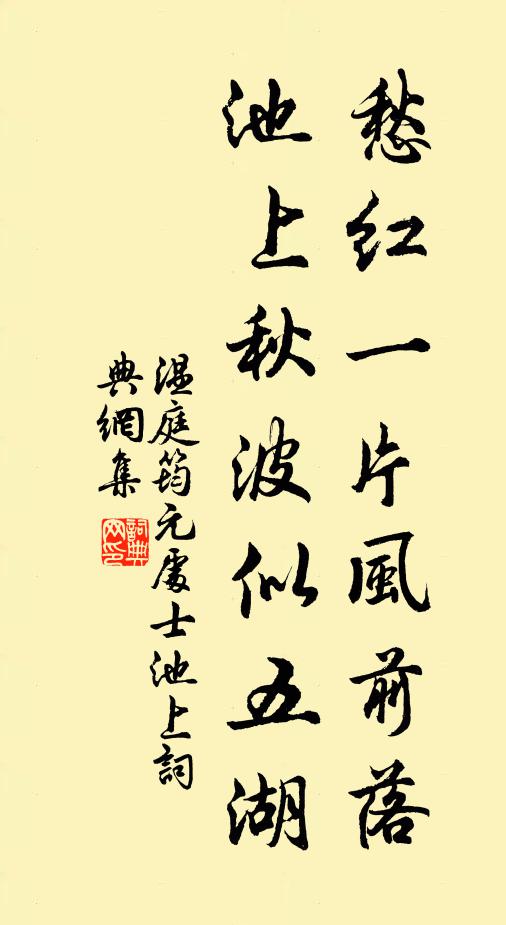 愁红一片風前落
池上秋波似五湖
温庭筠元處士池上詞
典網集
詞典
网印